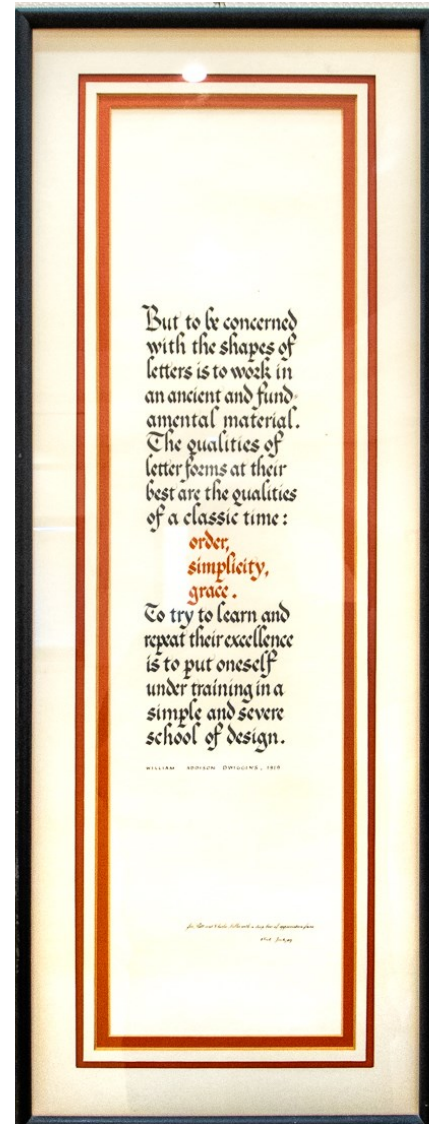 But to be concerned
with the shapes of
letters is to work in
an ancient and fund-
amental material.
The qualities of
letter forms at their
best are the qualities
of a classic time:
order,
simplicity,
grace.
To try to learn and
repeat their excellence
is to put oneself
under training in a
simple and severe
school of design.
WILLIAM ADDISON DWIGGINS,
for and with a deep of appreciation